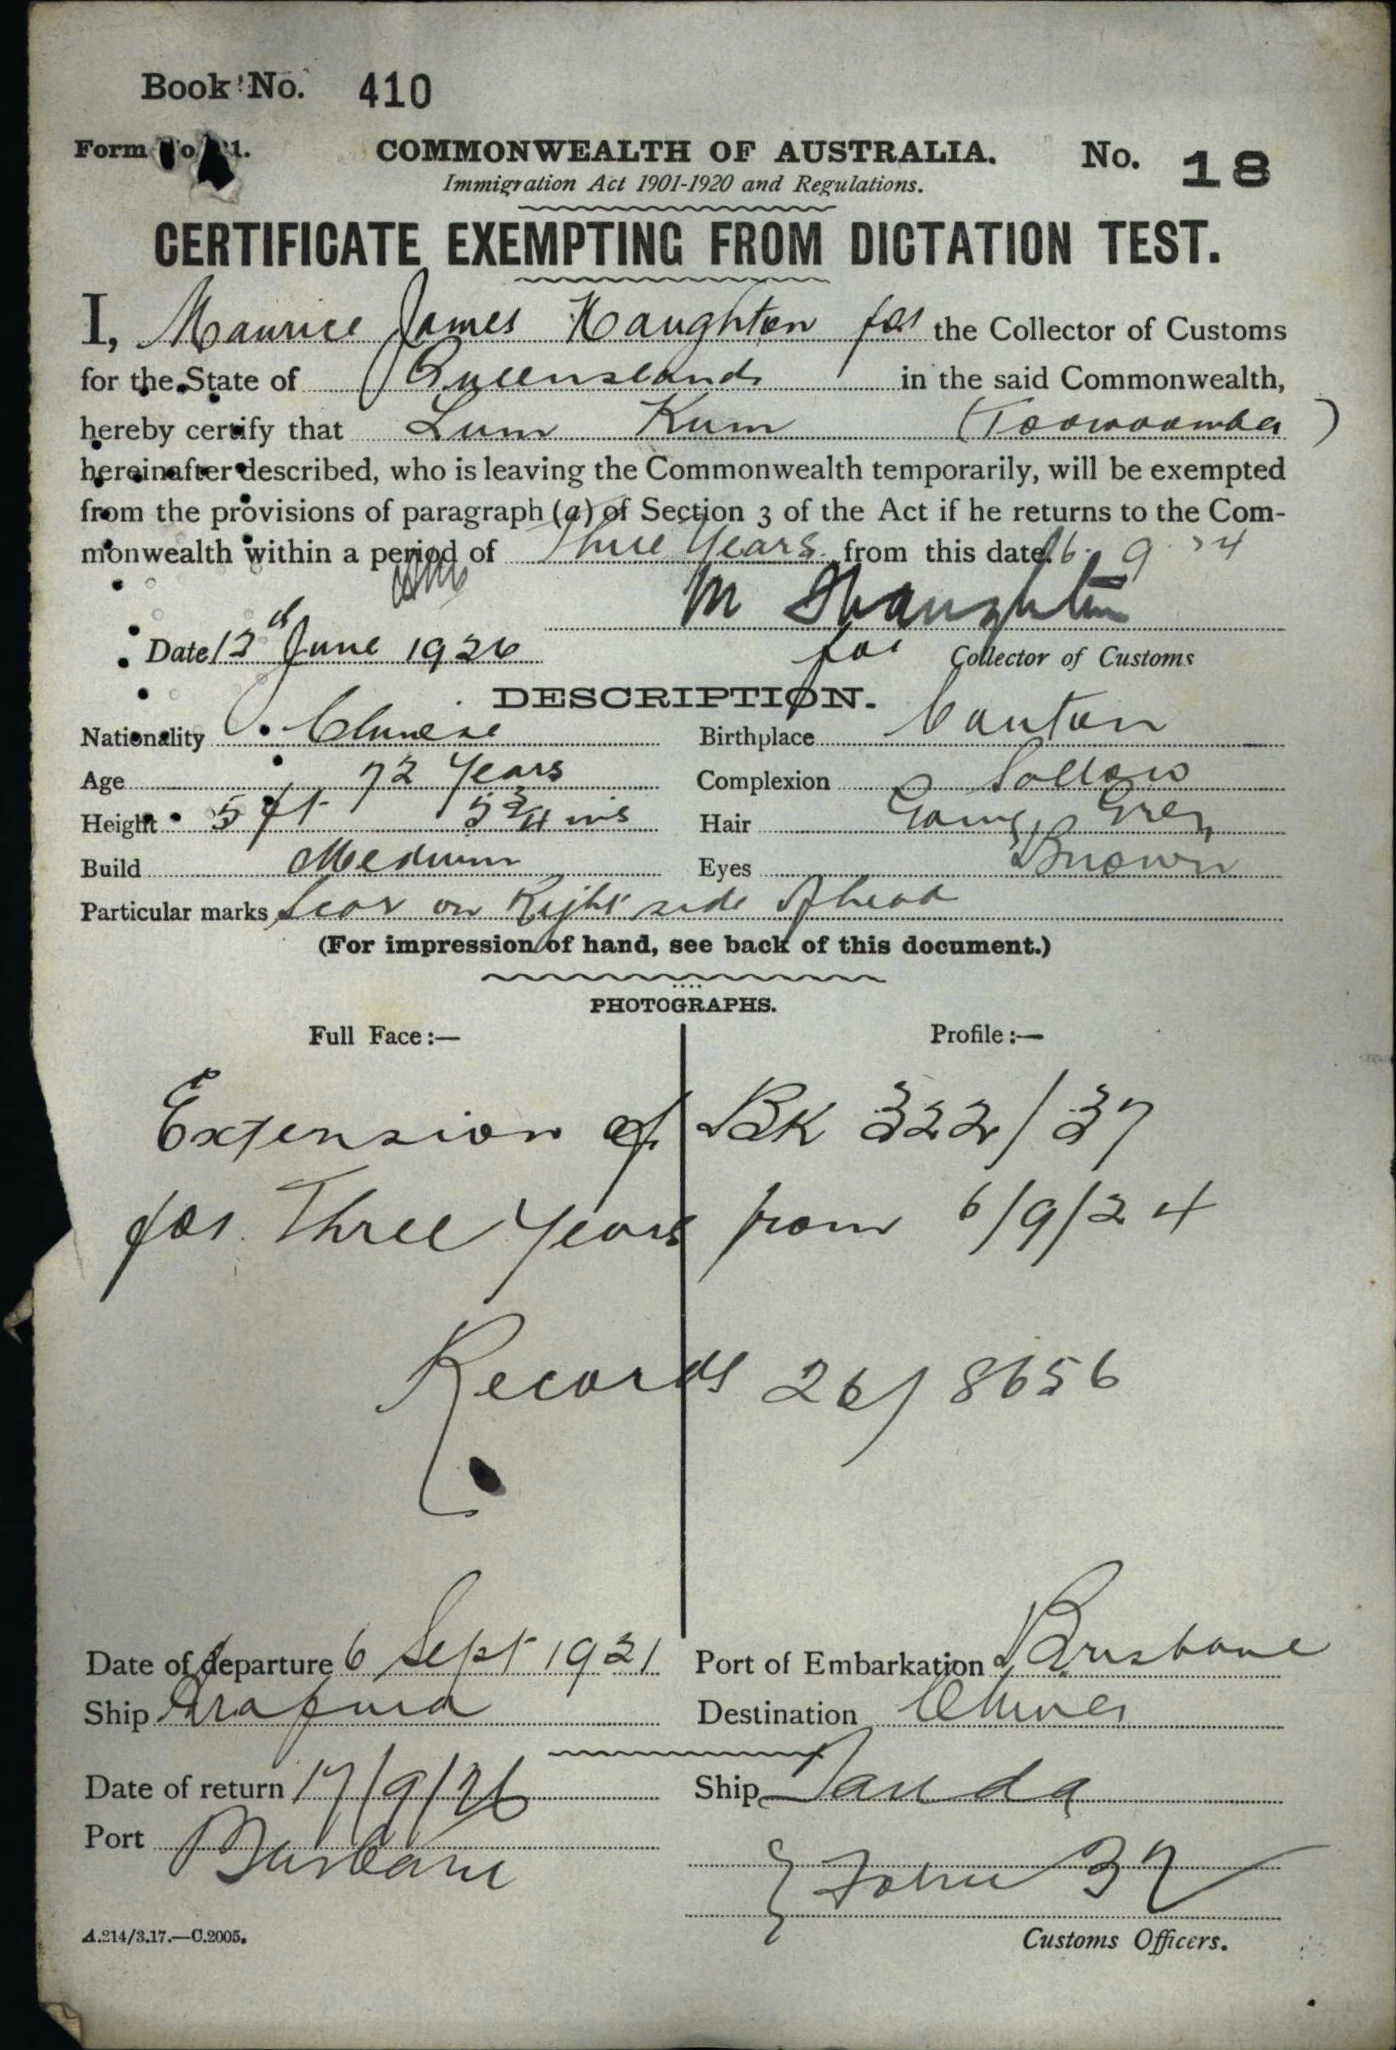 Book No. 410
Form No. 21. COMMONWEALTH OF AUSTRALIA. No. 18
Immigration Act 1901-1920 and Regulations.
CERTIFICATE EXEMPTING FROM DICTATION TEST.
I, Maurice James Naughton for the Collector of Customs
for the State of Queensland in the said Commonwealth,
hereby certify that Lum Kum (Toowoomba)
hereinafter described, who is leaving the Commonwealth temporarily, will be exempted
from the provisions of paragraph (a) of Section 3 of the Act if he returns to the Com-
monwealth within a period of Three Years from this date 6. 9. 24
for
Date 12th June 1926 Collector of Customs
DESCRIPTION.
Nationality Chinese Birthplace Canton
Age 72 Years Complexion Sallow
Height 5 ft 5 3/4 ins Hair Going Grey
Build Medium Eyes Brown
Particular marks Scar on Right side of head
(For impression of hand, see back of this document.)
PHOTOGRAPHS.
Full Face :— Profile :—
Extension of BK 322/37
for Three Years from 6/9/24
Records 26/8656
Date of departure 6 Sept 1921 Port of Embarkation Brisbane
Ship Arafura Destination China
Date of return 17/9/26 Ship Tanda
Port Brisbane
Customs Officers.
A.214/3.17.—C.2005.